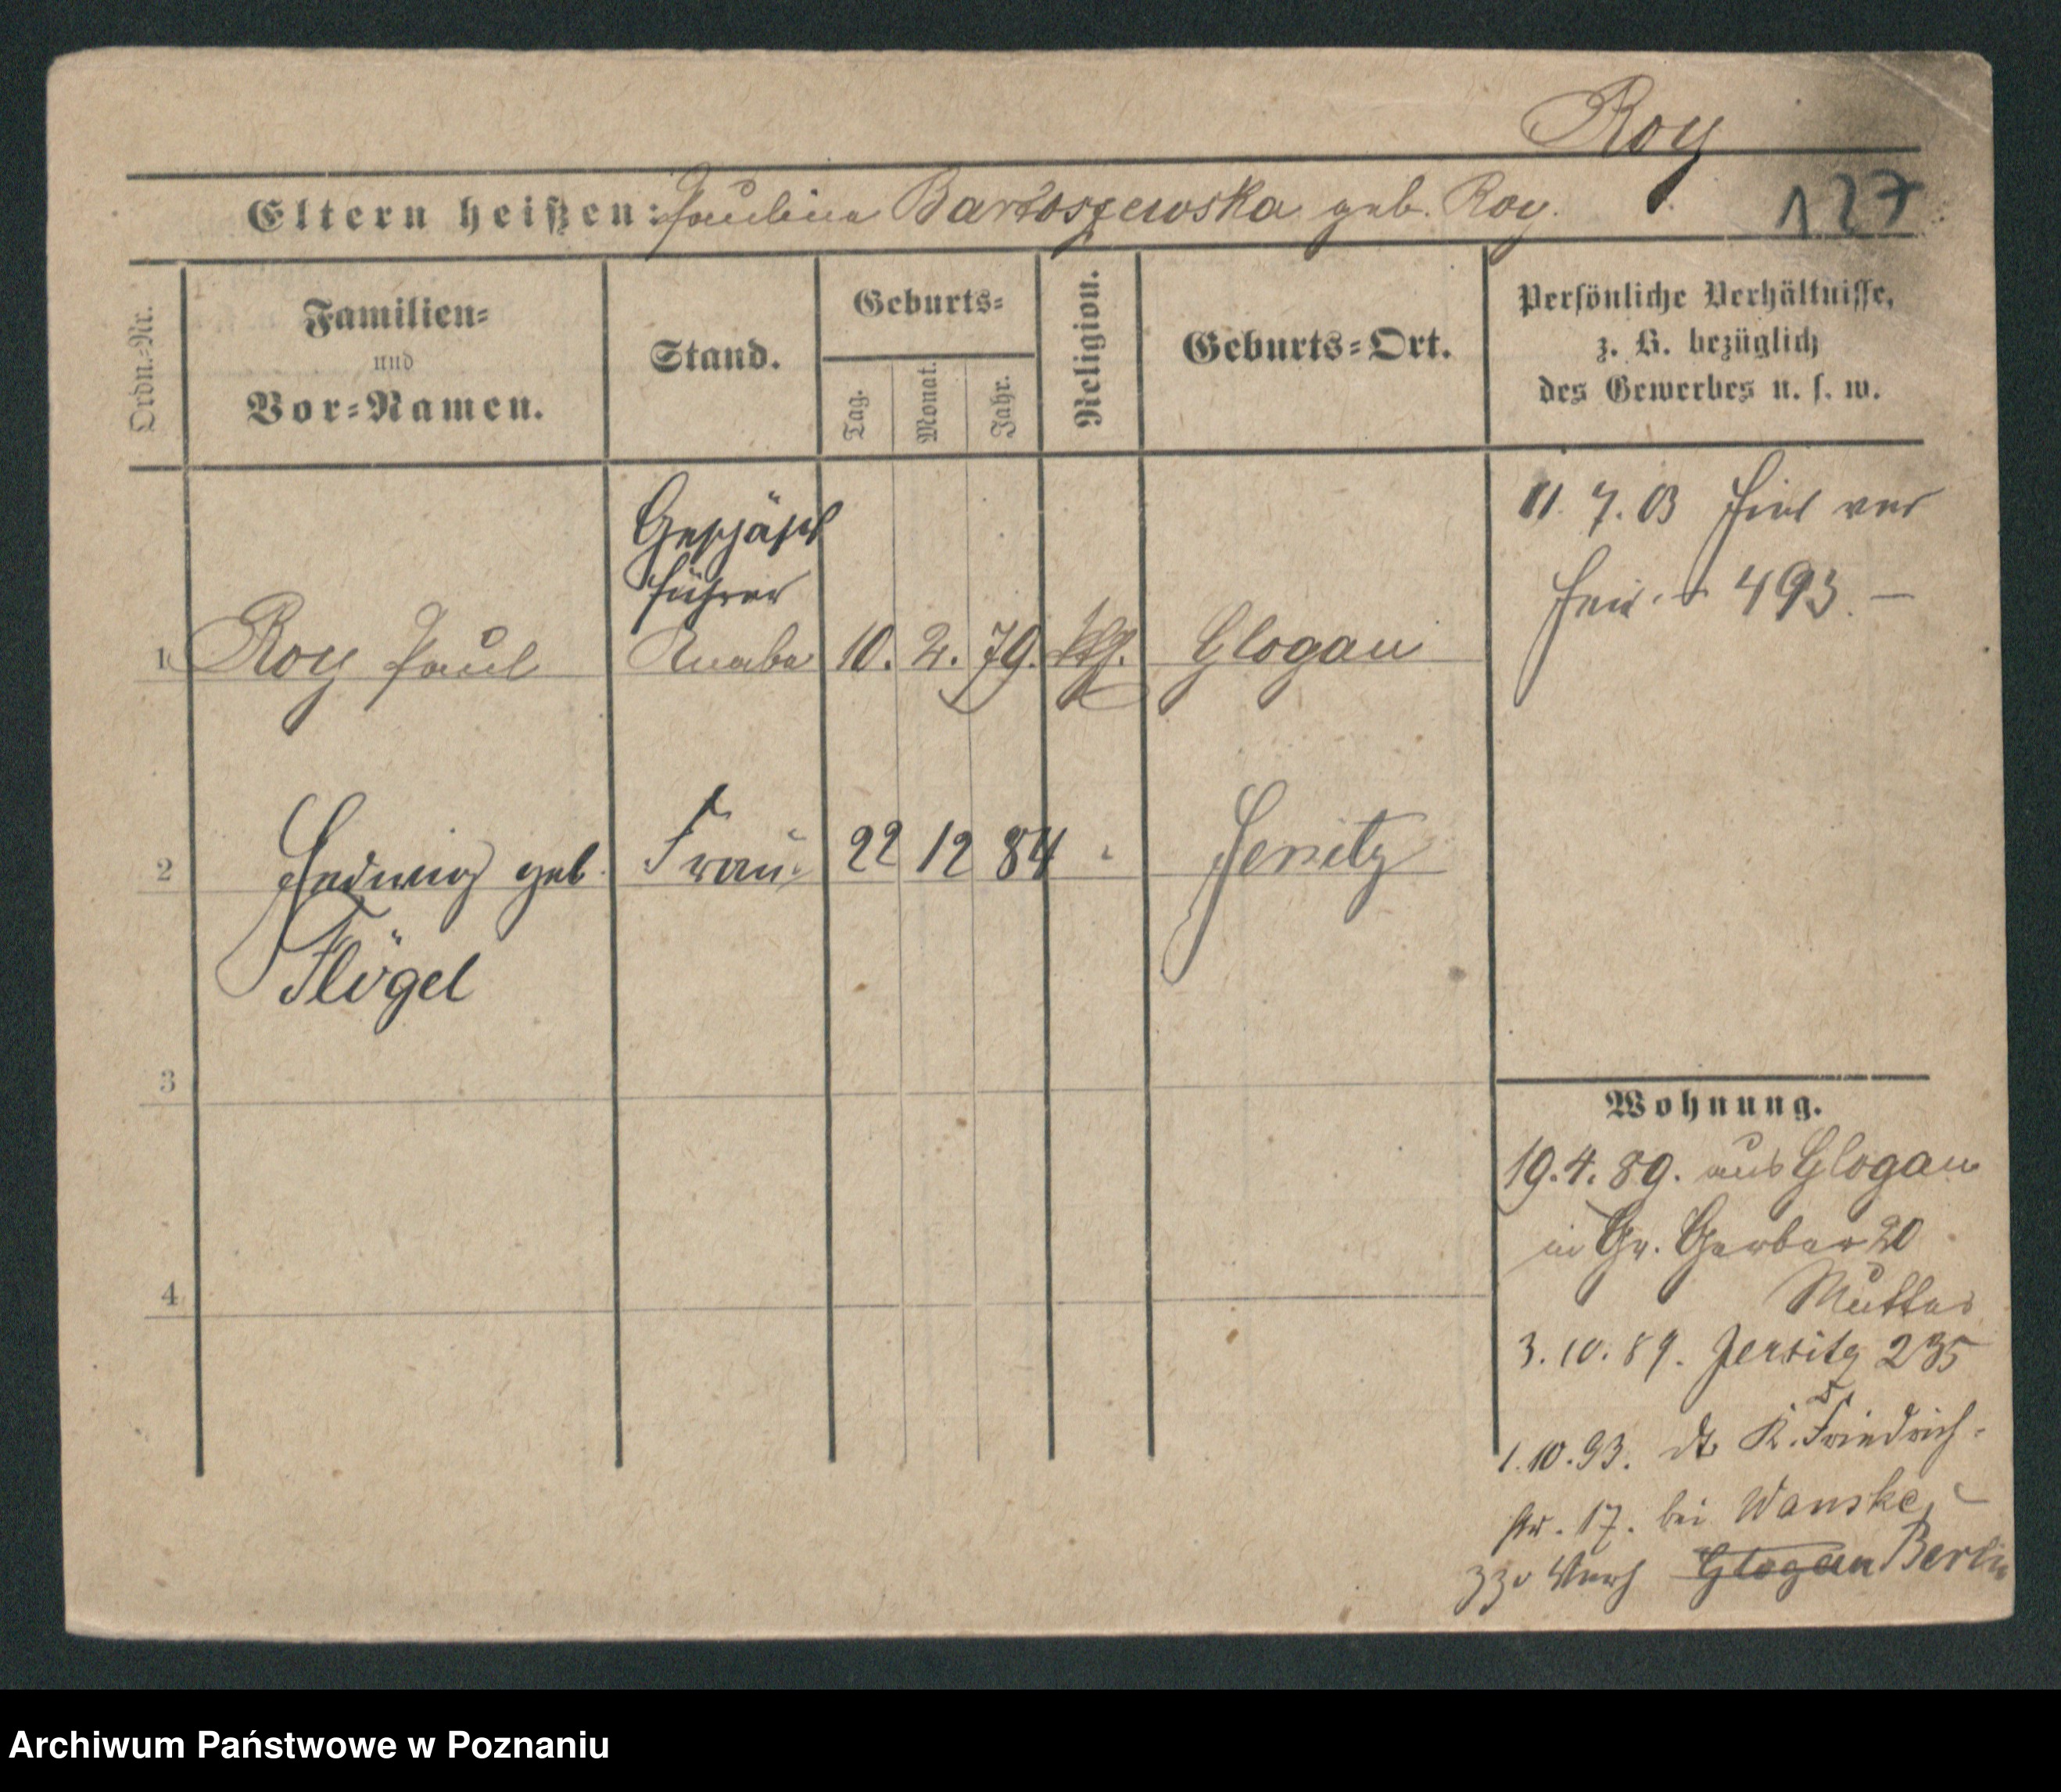 Roy
127
Eltern heißen: Paulina Bartoszewska geb. Roy.
Ordn.-Nr.
Familien-
und
Vor-Namen.
Stand.
Geburts-
Tag.
Monat.
Jahr.
Religion.
Geburts-Ort.
Persönliche Verhältnisse,
z. B. bezüglich
des Gewerbes u. s. w.
11. 7. 03
493. —
Geschäft
führer
1 Roy Paul Knabe 10. 2. 79. kth. Glogau
2 Hedwig geb. Frau 22 12 84 Jersitz
Flögel
3
4
Wohnung.
19. 4. 89. aus Glogau
in Gr. Gerber 20
Mutter
3. 10. 89. Jersitz 235
1. 10. 93. K. Friedrich-
str. 17. bei Wanske
Glogau Berlin
Archiwum Państwowe w Poznaniu